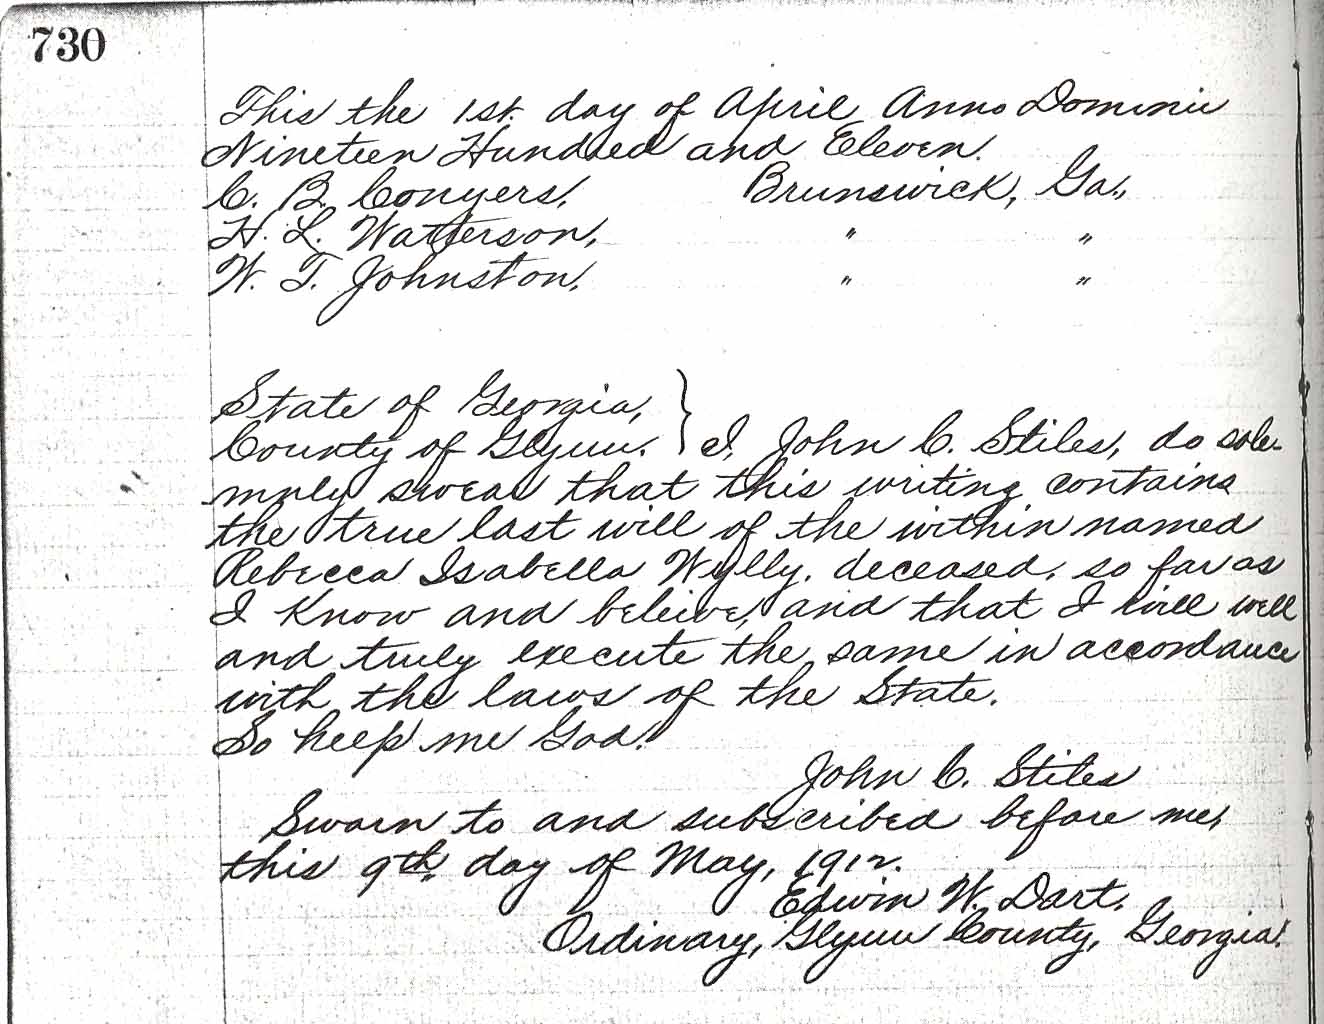 730
This the 1st. day of April Anno Domini
Nineteen Hundred and Eleven.
C. B. Conyers, Brunswick, Ga.,
H. L. Watterson, " "
W. T. Johnston, " "
State of Georgia,
County of Glynn. } I, John C. Stiles, do sole-
mnly swear that this writing contains
the true last will of the within named
Rebecca Isabella Wylly, deceased, so far as
I know and beleive, and that I will well
and truly execute the same in accordance
with the laws of the State.
So help me God.
John C. Stiles
Sworn to and subscribed before me,
this 9th. day of May, 1912.
Edwin W. Dart,
Ordinary, Glynn County, Georgia.